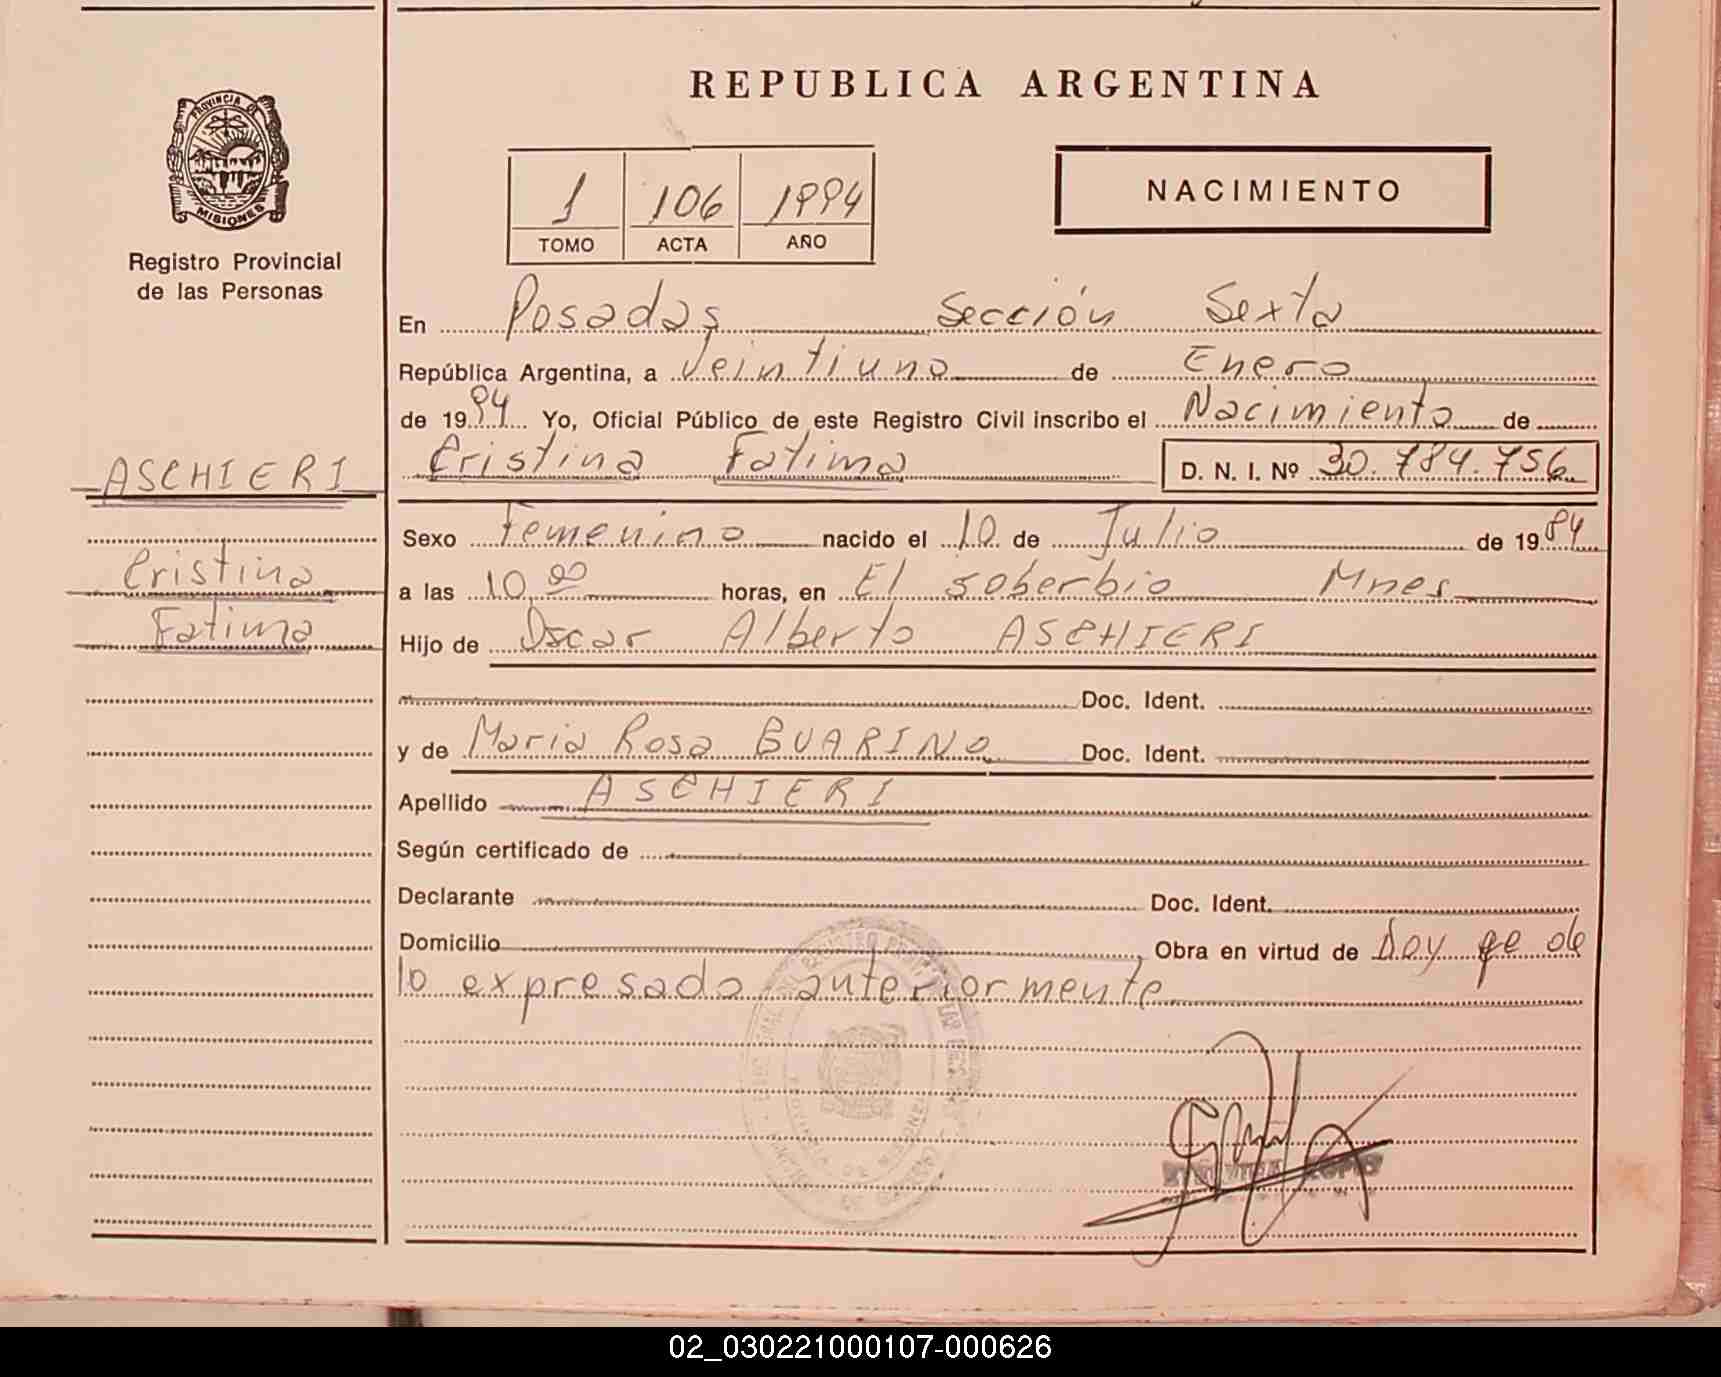 REPUBLICA ARGENTINA
PROVINCIA DE
MISIONES
Registro Provincial
de las Personas
1 106 1994
TOMO ACTA AÑO
NACIMIENTO
En Posadas Sección Sexta
República Argentina, a Veintiuno de Enero
de 1994 Yo, Oficial Público de este Registro Civil inscribo el Nacimiento de
Cristina Fatima D. N. I. Nº 30.784.756
ASCHIERI
Cristina
Fatima
Sexo Femenino nacido el 10 de Julio de 1984
a las 10,00 horas, en El soberbio Mnes
Hijo de Oscar Alberto ASCHIERI
Doc. Ident.
y de Maria Rosa BUARINO Doc. Ident.
Apellido ASCHIERI
Según certificado de
Declarante Doc. Ident.
Domicilio Obra en virtud de Ley qe de
lo expresado anteriormente
LOPEZ
02_030221000107-000626